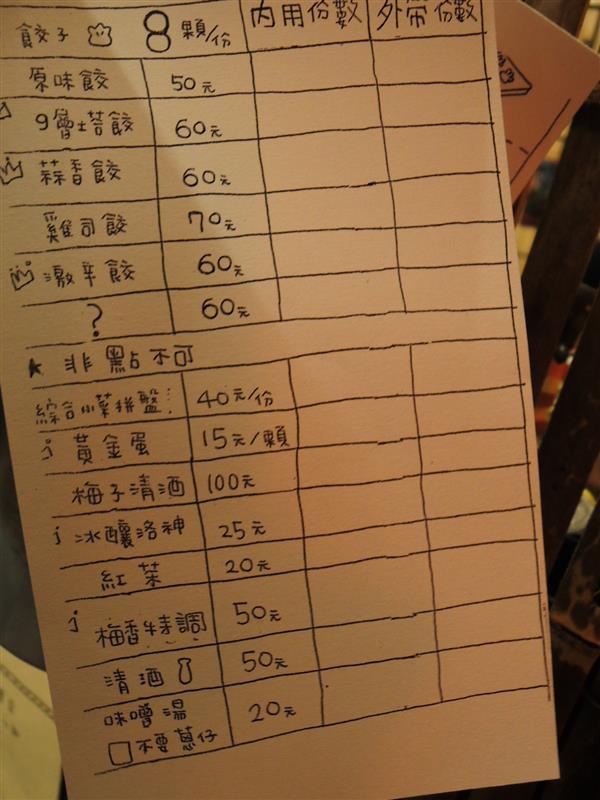 餃子 8顆/份 內用份數 外帶份數
原味餃 50元
9層塔餃 60元
蒜香餃 60元
雞司餃 70元
激辛餃 60元
? 60元
非點不可
綜合小菜拼盤 40元/份
黃金蛋 15元/顆
梅子清酒 100元
冰釀洛神 25元
紅茶 20元
梅香特調 50元
清酒 50元
味噌湯 20元
不要蔥仔